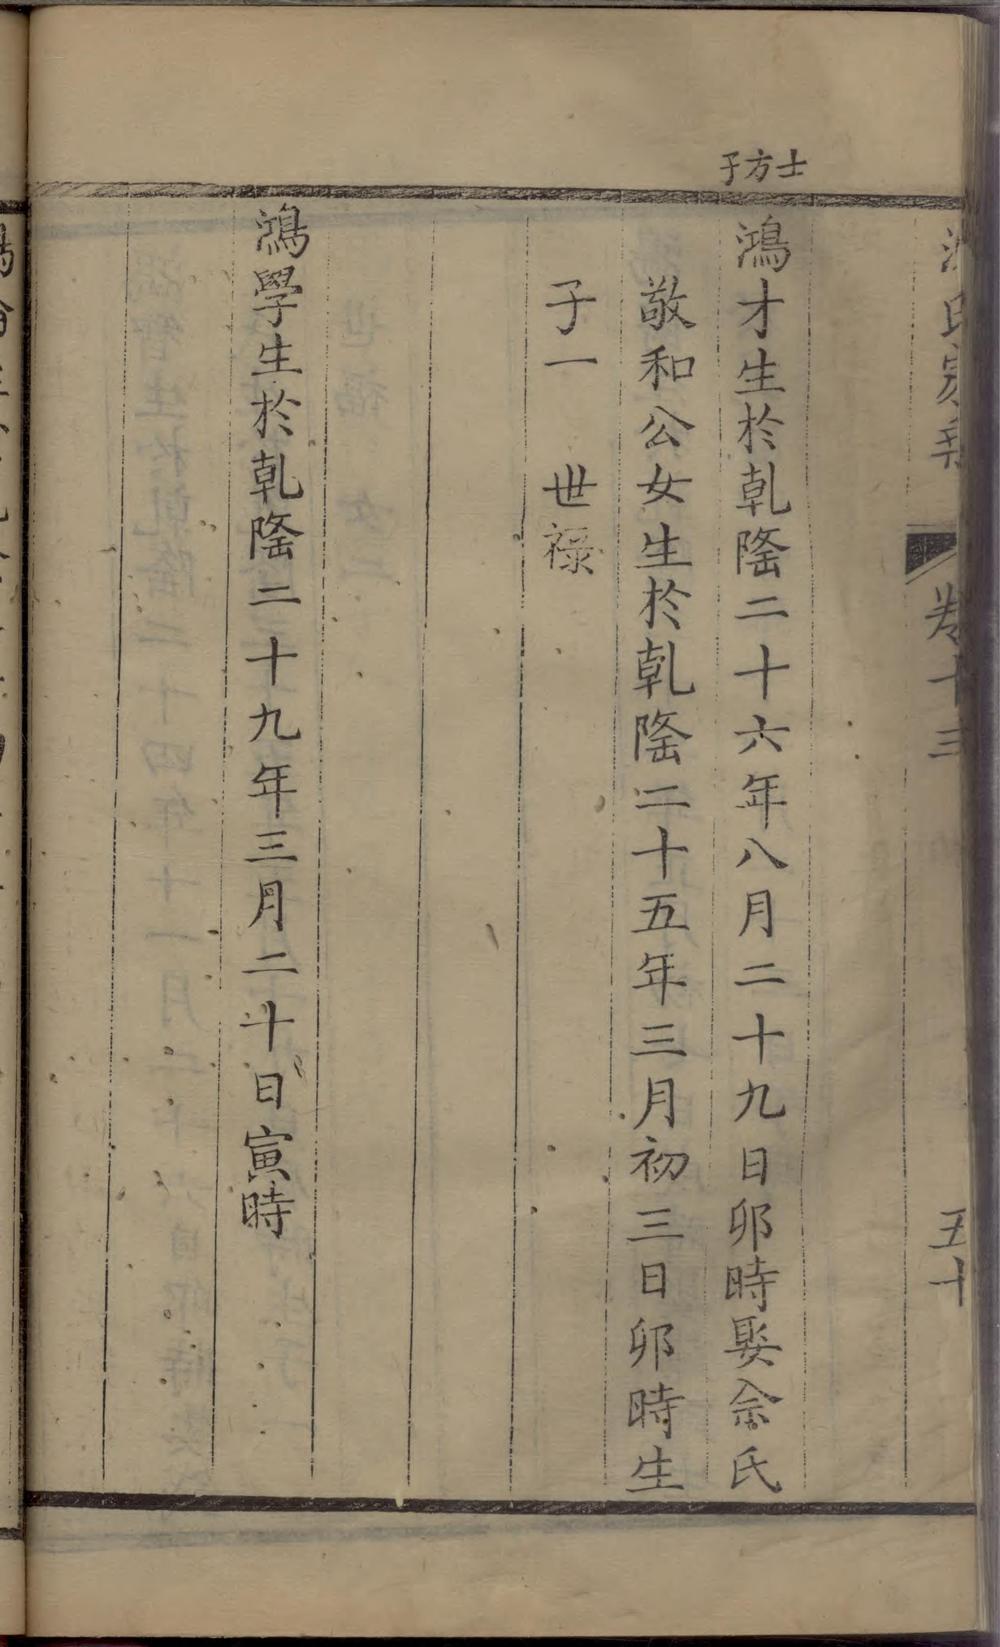 士方子
鴻才生於乹隆二十六年八月二十九日卯時娶佘氏
敬和公女生於乹隆二十五年三月初三日卯時生
子一 世禄
鴻學生於乹隆二十九年三月二十日寅時
卷十三
五十